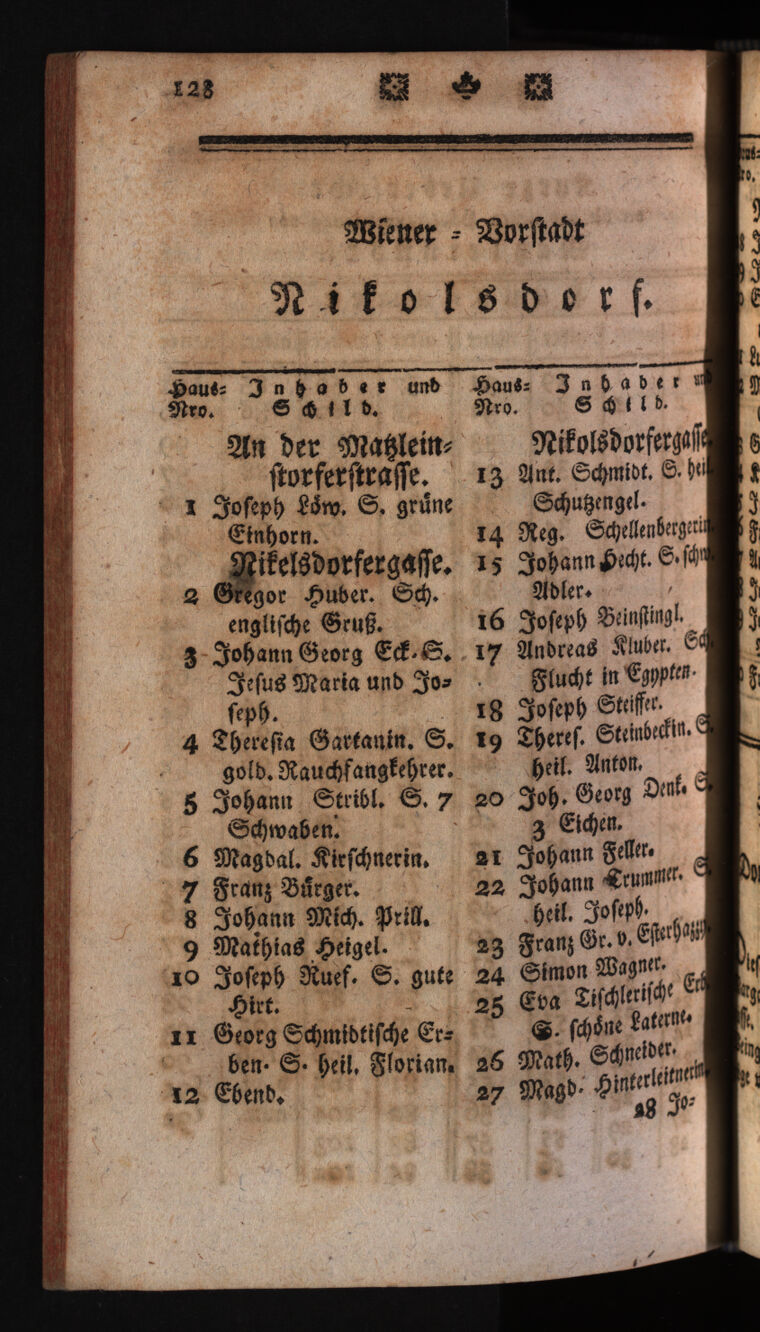 128
Wiener = Vorstadt
Nikolsdorf.
Haus= Inhaber und
Nro. Schild.
An der Matzlein=
storferstrasse.
1 Joseph Löw. S. grüne
Einhorn.
Nikelsdorfergasse.
2 Gregor Huber. Sch.
englische Gruß.
3 Johann Georg Eck. S.
Jesus Maria und Jo=
seph.
4 Theresia Gartanin. S.
gold. Rauchfangkehrer.
5 Johann Stribl. S. 7
Schwaben.
6 Magdal. Kirschnerin.
7 Franz Bürger.
8 Johann Mich. Prill.
9 Mathias Heigel.
10 Joseph Ruef. S. gute
Hirt.
11 Georg Schmidtische Er=
ben. S. heil. Florian.
12 Ebend.
Haus= Inhaber
Nro. Schild.
Nikolsdorfergasse
13 Ant. Schmidt. S. heil
Schutzengel.
14 Reg. Schellenbergerin
15 Johann Hecht. S. schw
Adler.
16 Joseph Beinstingl.
17 Andreas Kluber. Sch
Flucht in Egypten.
18 Joseph Steiffer.
19 Theres. Steinbeckin. S.
heil. Anton.
20 Joh. Georg Denk. S.
3 Eichen.
21 Johann Feller.
22 Johann Trummer. S
heil. Joseph.
23 Franz Gr. v. Esterhazy
24 Simon Wagner.
25 Eva Tischlerische Erb
S. schöne Laterne.
26 Math. Schneider.
27 Magd. Hinterleitnerin
28 Jo=